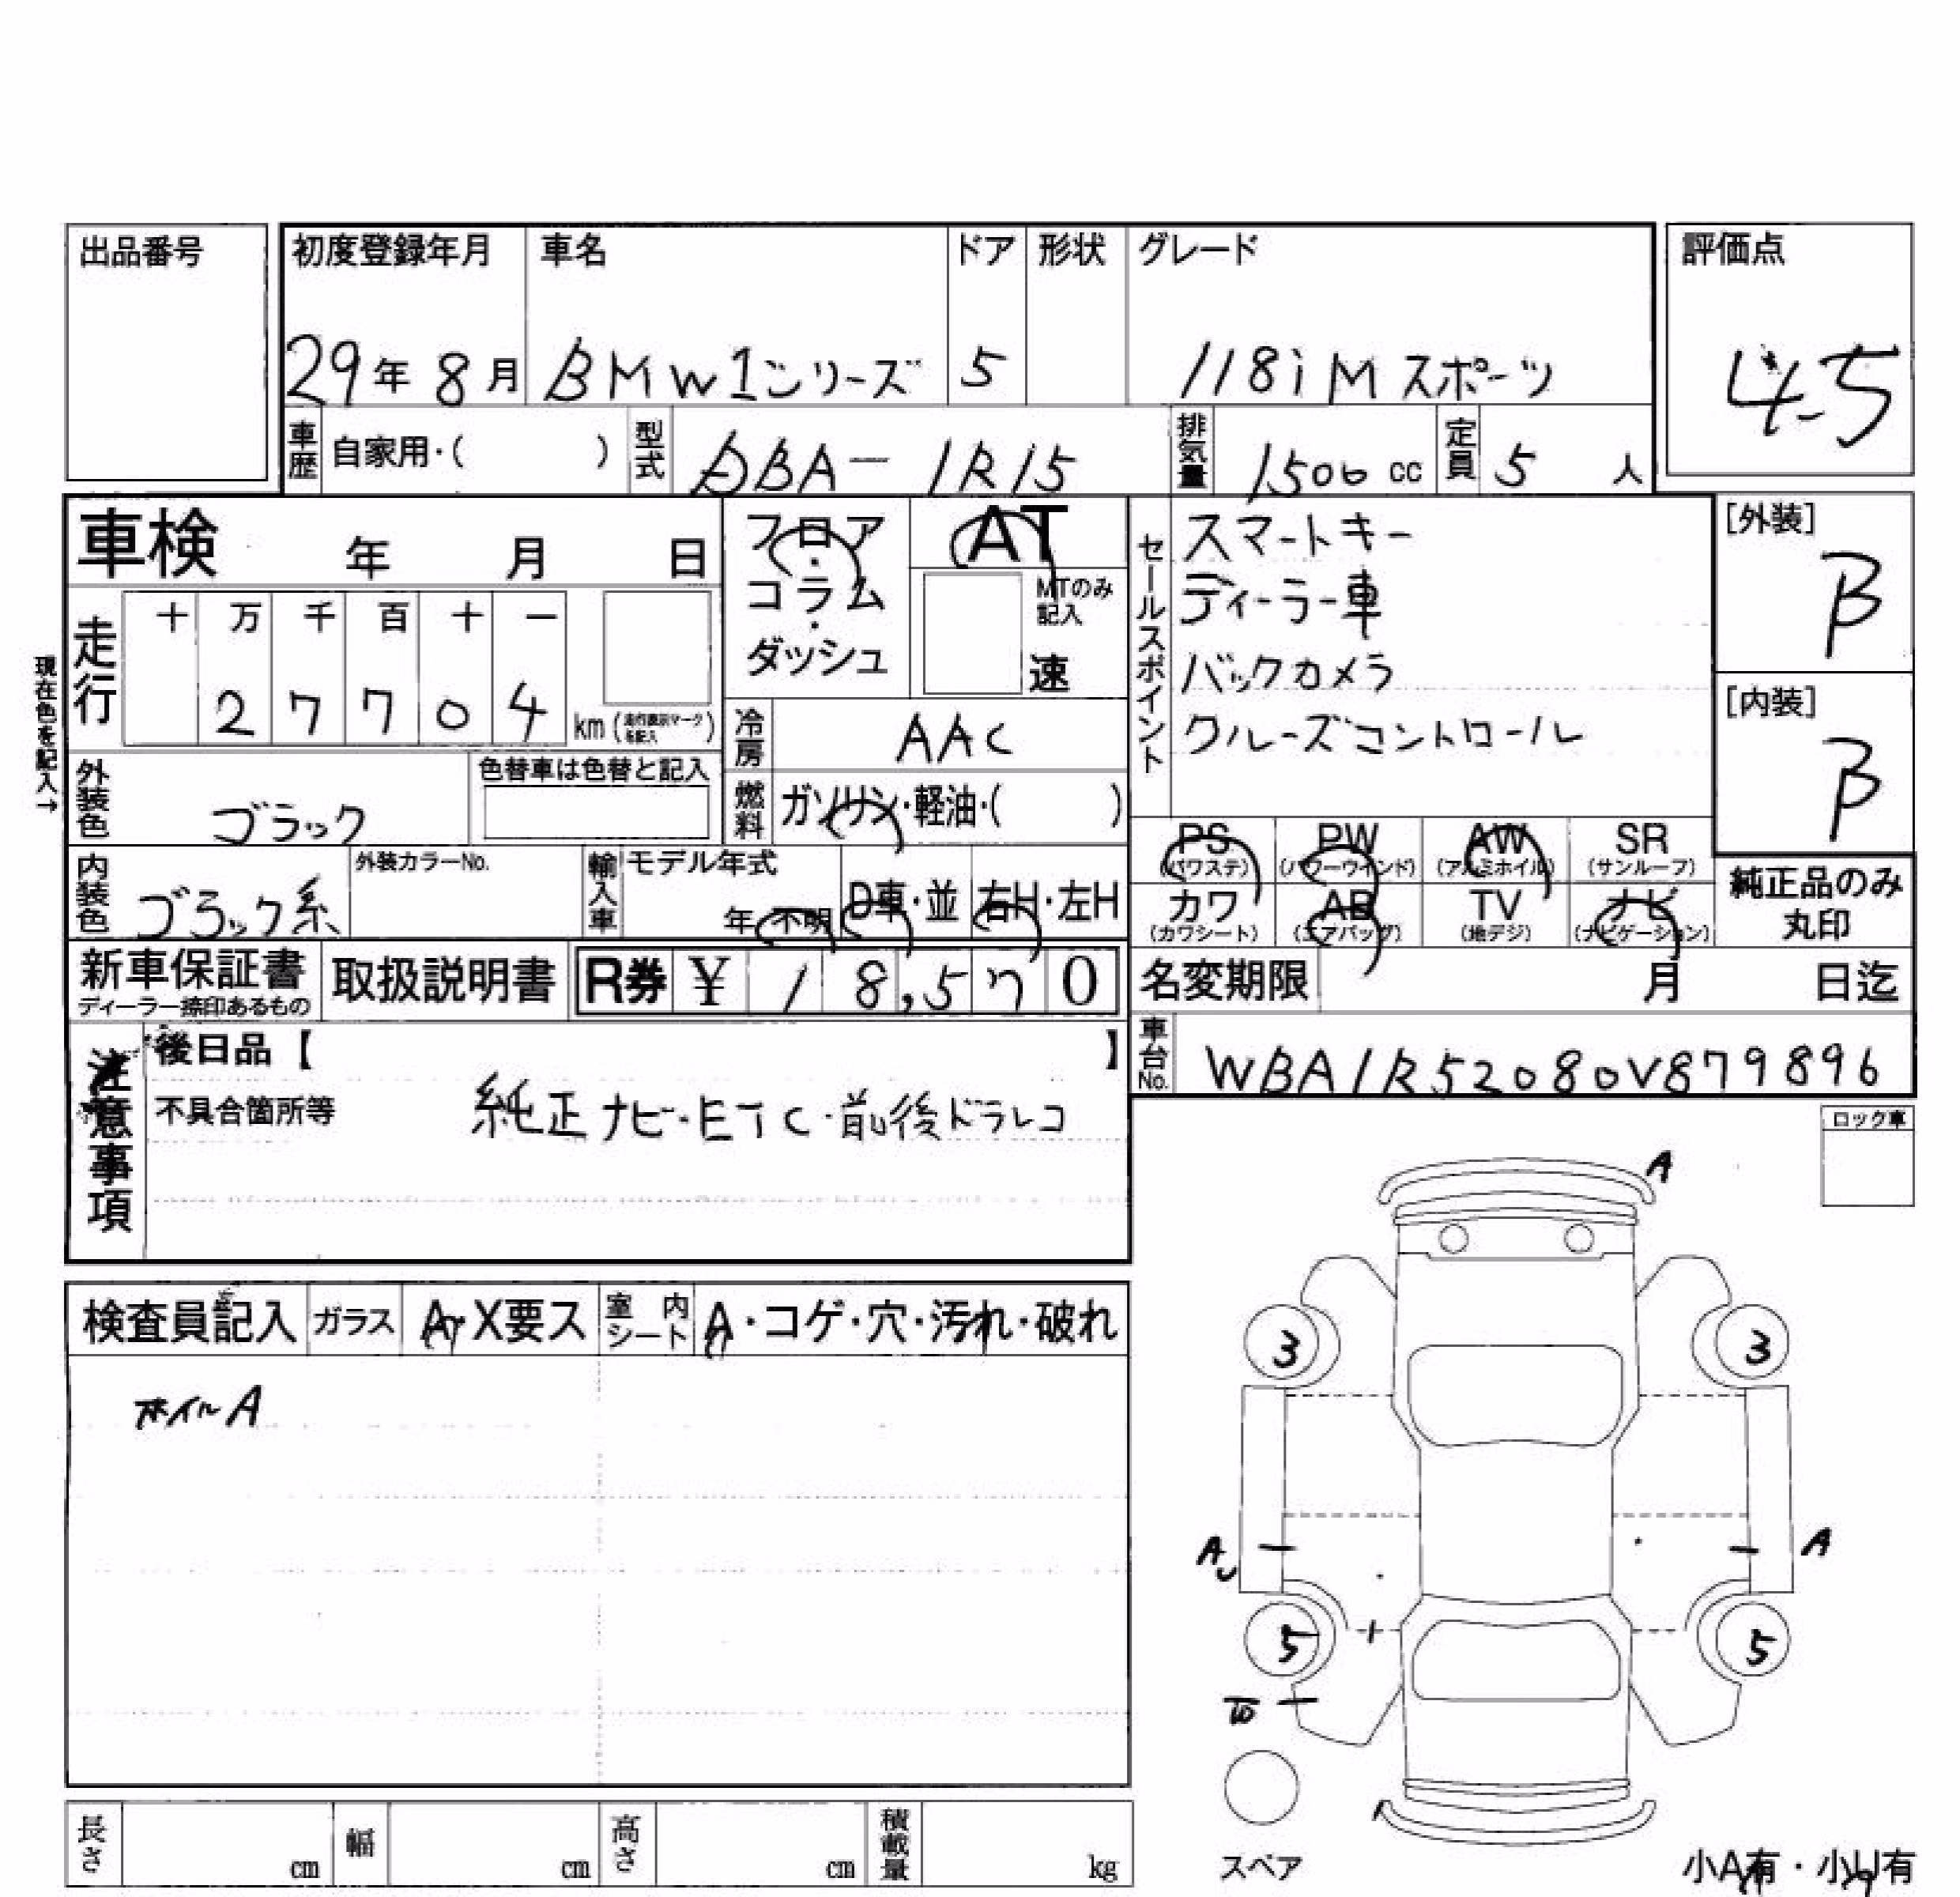 出品番号
初度登録年月 車名 ドア 形状 グレード 評価点
29年 8月 BMW1シリーズ 5 118i Mスポーツ 4.5
車歴 自家用・( ) 型式 DBA-1R15 排気量 1500cc 定員 5人
車検 年 月 日
フロア・コラム・ダッシュ
AT
MTのみ記入
速
セールスポイント
スマートキー
ディーラー車
バックカメラ
クルーズコントロール
[外装]
B
[内装]
B
現在色を記入→
走行 十 万 千 百 十 一
2 7 7 0 4 km
冷房 AAC
外装色 ブラック 色替車は色替と記入
燃料 ガソリン・軽油・( )
PS PW AW SR
(パワステ) (パワーウインド) (アルミホイル) (サンルーフ)
カワ AB TV ナビ
(カワシート) (エアバッグ) (地デジ) (ナビゲーション)
純正品のみ
丸印
内装色 ブラック系 外装カラーNo. 輸入車 モデル年式 年 不明 D車・並 右H・左H
新車保証書 取扱説明書 R券 ¥ 1 8,5 7 0
ディーラー捺印あるもの
名変期限 月 日迄
車台No. WBA1R52080V879896
注意事項
後日品【 】
不具合箇所等 純正ナビ・ETC・前後ドラレコ
ロック車
検査員記入 ガラス A・X要ス 室内シート A・コゲ・穴・汚れ・破れ
ホイルA
A
3 3
A A
5 5
スペア
長さ cm 幅 cm 高さ cm 積載量 kg
小A有・小U有